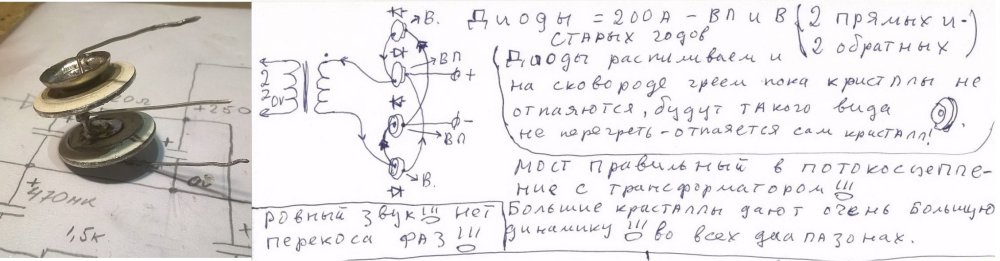 +250
20л
+
470мк
1,5к
220V
В.
ВП
ф+
ф-
ВП
В.
Диоды = 200А - ВП и В (2 прямых и
старых годов
2 обратных)
Диоды распиливаем и
на сковороде греем пока кристаллы не
отпаяются, будут такого вида
не перегреть - отпаяется сам кристалл!
Мост правильный в потокосцепле-
ние с трансформатором !!!
Большие кристаллы дают очень большую
динамику !!! во всех диапазонах.
ровный звук !!! нет
перекоса фаз !!!